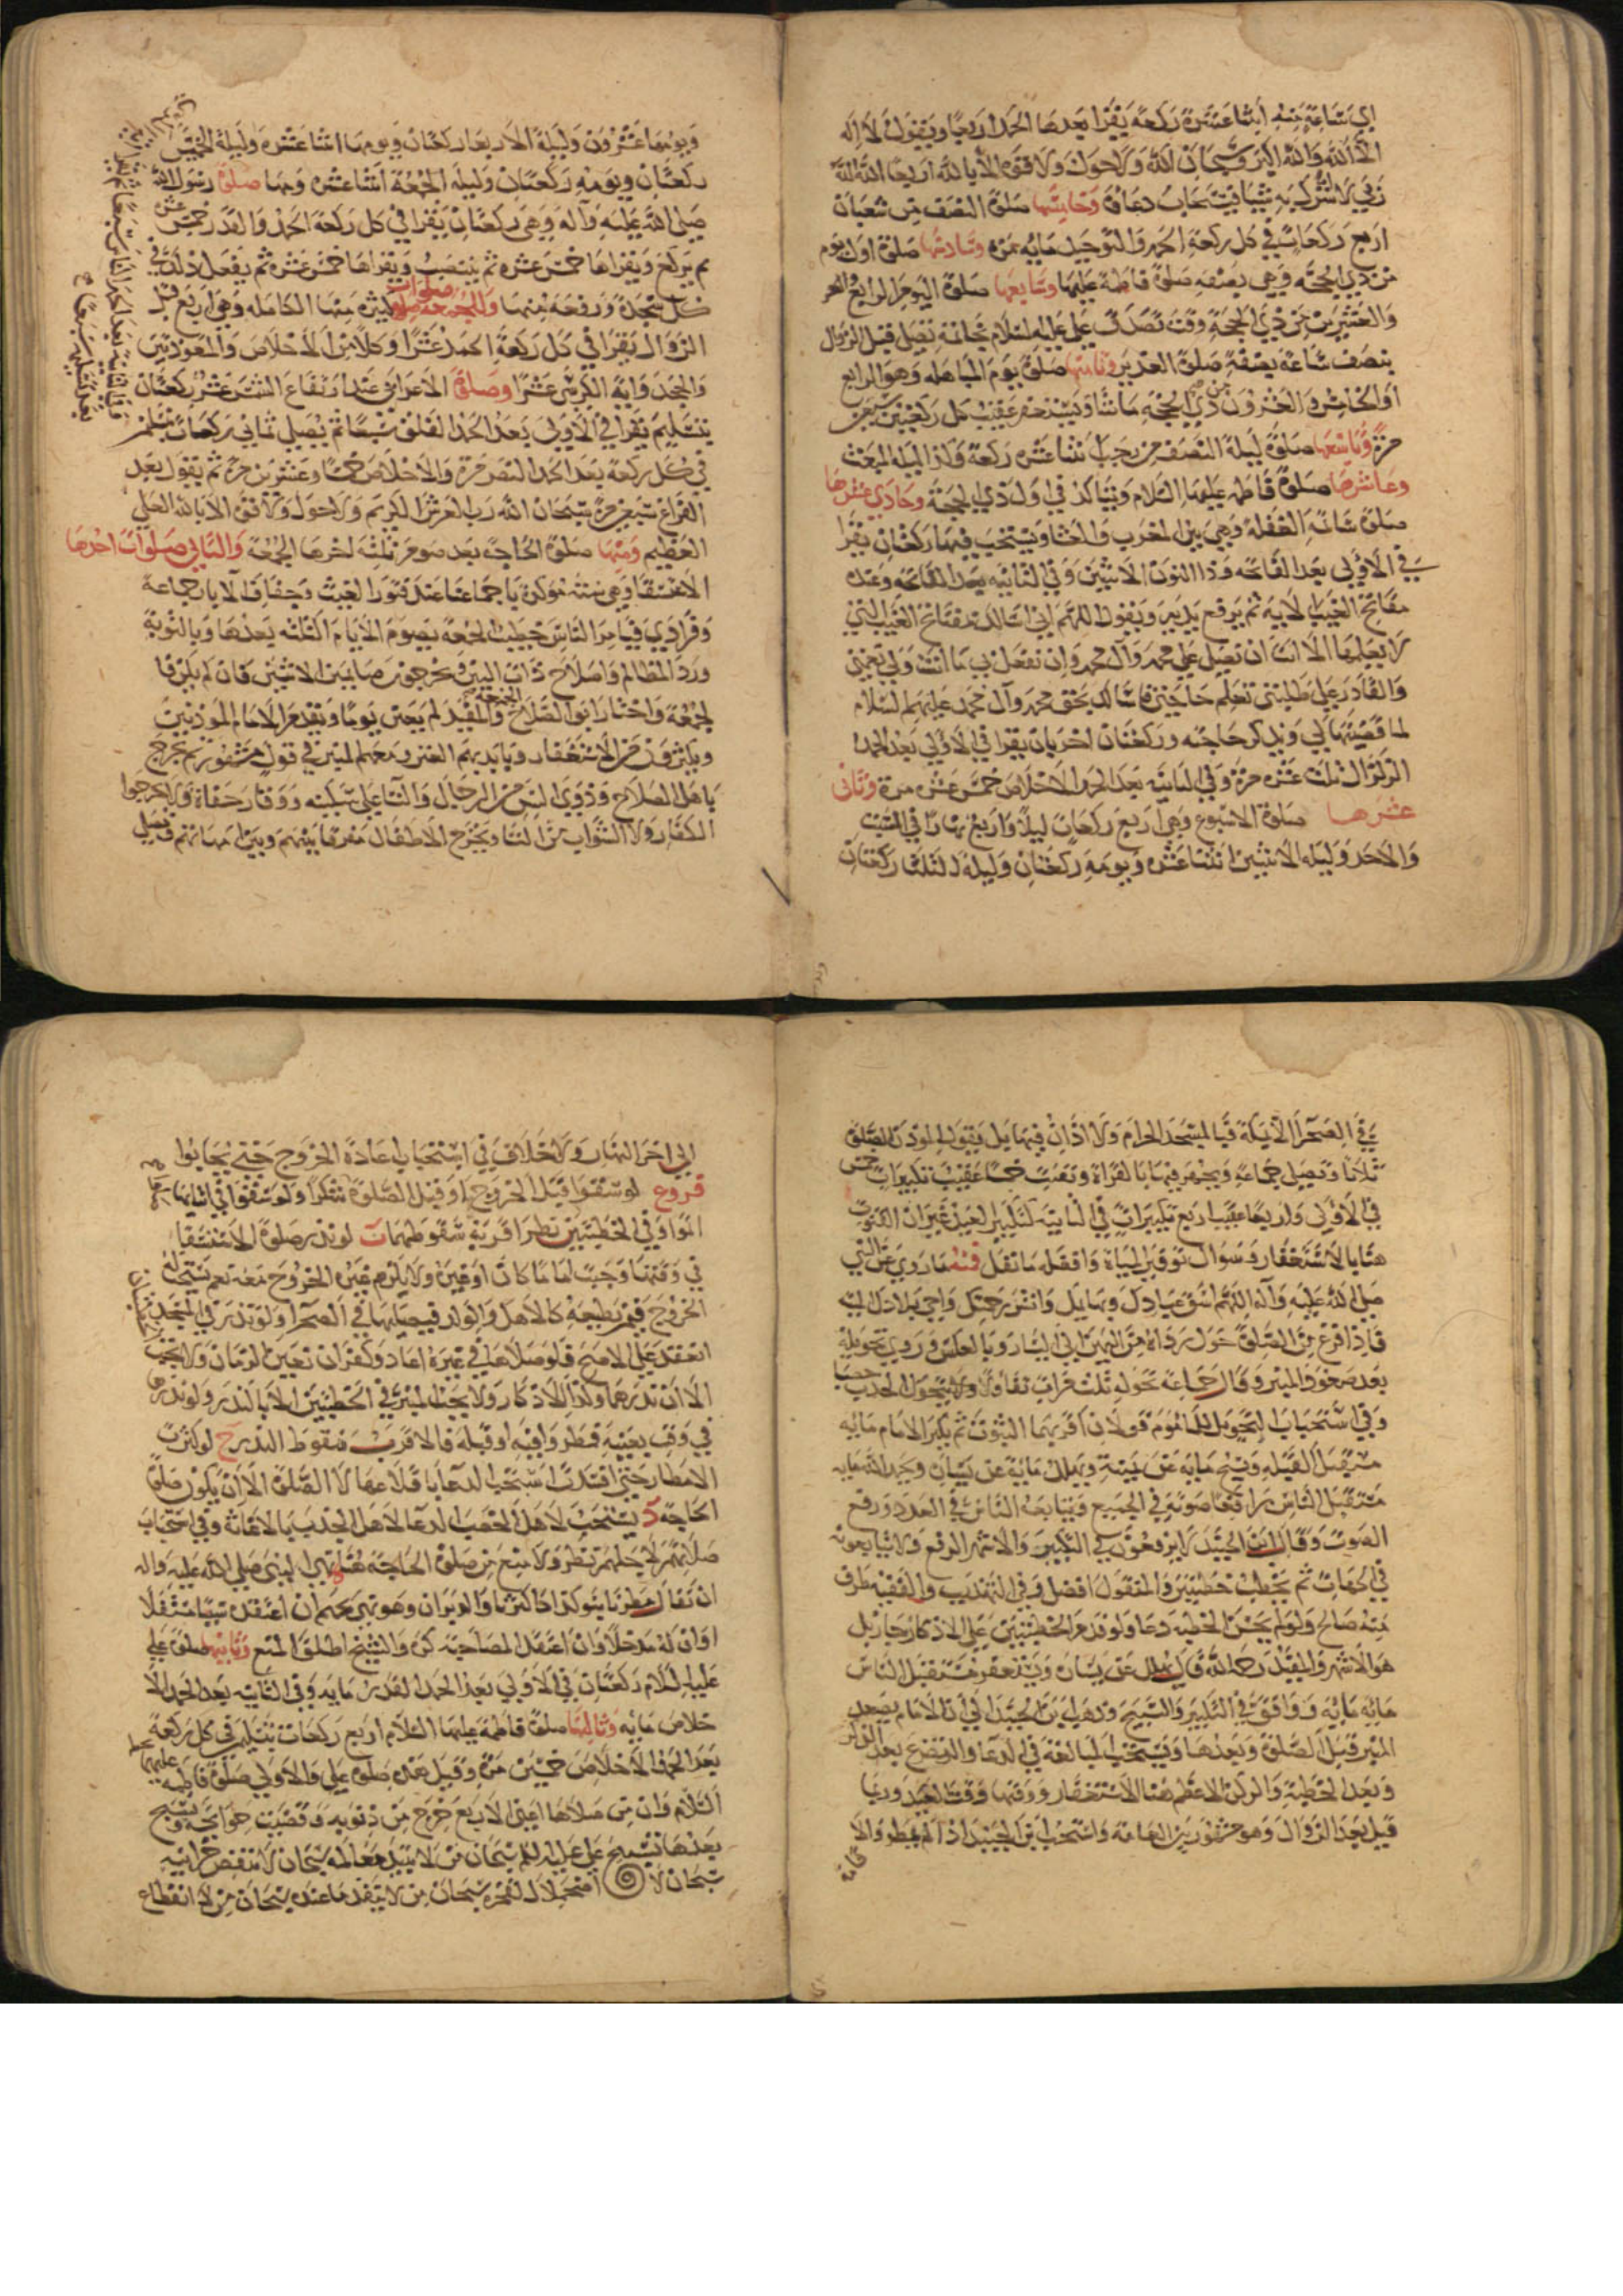 اي ساعة منه اثنا عشرة ركعة يقرا بعدها الحمد اربعا ويقول لا اله
الا الله والله اكبر وسبحان الله ولا حول ولا قوة الا بالله اربعا الله الله
ربي لا اشرك به شيئا فيستجاب دعاؤه وخامستها صلوة النصف من شعبان
اربع ركعات في كل ركعة الحمد والتوحيد مايه مره وسادستها صلوة اول يوم
من ذي الحجة وهي بصفة صلوة فاطمة عليها وسابعها صلوة اليوم الرابع
والعشرين من ذي الحجة وقت تصدق علي عليه السلام بخاتمه تصلى قبل الزوال
بنصف ساعة بصفة صلوة الغدير وثامنها صلوة يوم المباهله وهو الرابع
او الخامس والعشرون من ذي الحجه ما شاء ويستغفر عقيب كل ركعتين سبعين
مرة وتاسعها صلوة ليلة النصف من رجب اثنتا عشره ركعة وكذا ليله المبعث
وعاشرها صلوة فاطمه عليها السلام ويتاكد في اول ذي الحجة وحادي عشرها
صلوة ساعة الغفلة وهي بين المغرب والعشا ويستحب فيها ركعتان يقرا
في الاولى بعد الفاتحه وذا النون الايتين وفي الثانيه بعد الفاتحه وعنده
مفاتح الغيب الاية ثم يرفع يديه ويقول اللهم اني اسالك بمفاتح الغيب التي
لا يعلمها الا انت ان تصلي على محمد وآل محمد وان تفعل بي ما انت ولي نعمتي
والقادر على طلبتي تعلم حاجتي فاسالك بحق محمد وآل محمد عليهم السلام
لما قضيتها لي ويذكر حاجته وركعتان اخريان يقرا في الاولى بعد الحمد
الزلزال ثلث عشره مرة وفي الثانيه بعد الحمد الاخلاص خمس عشره مرة وثاني
عشرها صلوة الاسبوع وهي اربع ركعات ليلا واربع نهارا في السبت
والاحد وليله الاثنين اثنتا عشره ويومه ركعتان وليلة الثلثا ركعتان
ويومها عشرون وليلة الاربعا ركعتان ويومها اثنتا عشره وليلة الخميس
ركعتان ويومه ركعتان وليله الجمعة اثنتا عشره ومنها صلوة رسول الله
صلى الله عليه وآله وهي ركعتان يقرا في كل ركعة الحمد والقدر خمس عشره
ثم يركع ويقراها خمس عشره ثم ينتصب ويقراها خمس عشره ثم يفعل ذلك في
كل سجدة ورفعه منها وللجمعة صلوات كثيره منها الكامله وهي اربع قبل
الزوال يقرا في كل ركعة الحمد عشرا وكلا من الاخلاص والمعوذتين
والجحد واية الكرسي عشرا وصلوة الاعرابي عند ارتفاع الشمس عشر ركعتان
بتسليم يقرا في الاولى بعد الحمد الفلق سبعا ثم يصلي ثماني ركعات بتسليمتين
في كل ركعة بعد الحمد النصر مرة والاخلاص خمسا وعشرين مرة ثم يقول بعد
الفراغ سبعين مرة سبحان الله رب العرش الكريم ولا حول ولا قوة الا بالله العلي
العظيم ومنها صلوة الحاجة بعد صوم ثلثه اخرها الجمعة والثاني صلوات احدها
الاستسقا وهي سنة مؤكدة جماعة عند فتور الغيث وجفاف الابار جماعة
وفرادى فيامر الناس خطيب الجمعة بصوم الايام الثلثه بعدها وبالتوبة
ورد المظالم واصلاح ذات البين ويخرجون صايمين الاثنين فان لم يكن فا
لجمعة واختار ابو الصلاح الجمعة والمفيد لم يعين يوما ويتقدم الامام المؤذنين
ويكثرون من الاستغفار وبايديهم العنز ومعهم المنبر في قول مشهور ثم يخرج
باهل الصلاح وذوي السن من الرجال والنسا على سكينه ووقار حفاة ولا يخرجوا
الكفار ولا الشواب من النسا ويخرج الاطفال مفرقا بينهم وبين امهاتهم فيصلي
في الصحرا الا بمكة فبالمسجد الحرام ولا اذان فيها بل يقول المؤذن الصلوة
ثلاثا وتصلى جماعة ويجهر فيها بالقراة ويقنت خمسا عقيب تكبيرات خمس
في الاولى واربعا عقيب اربع تكبيرات في الثانية كتكبير العيد غير ان القنوت
هنا بالاستغفار وسوال توفير المياه وافضله ما نقل فمنه ما روي عن النبي
صلى الله عليه وآله اللهم اسق عبادك وبهايمك وانشر رحمتك واحي بلادك الميته
فاذا فرغ من الصلوة حول رداه من اليمين الى اليسار وبالعكس وروي تحويله
بعد صعود المنبر وقال جماعة تحوله ثلث مرات تفاؤلا بتحول الجدب خصبا
وفي استحباب التحويل للماموم قولان اقربهما الثبوت ثم يكبر الامام مايه
مستقبل القبلة ويسبح مايه عن يمينه ويهلل مايه عن يساره ويحمد الله مايه
مستقبل الناس رافعا صوته في الجميع ويتابعه الناس في العدد ورفع
الصوت وقال ابن الجنيد لا يرفعون في التكبير والاشهر الرفع ولا يتابعونه
في الجهات ثم يخطب خطبتين والمنقول افضل وفي التهذيب والفقيه طرف
منه صالح ولو لم يحسن الخطبه دعا ولو قدم الخطبتين على الاذكار جاز بل
هو الاشهر والمفيد رحمه الله قال يهلل عن يساره ويستغفر مستقبل الناس
مايه مايه ووافق في التكبير والتسبيح وذهب ابن الجنيد الى ان الامام يصعد
المنبر قبل الصلوة وبعدها ويستحب المبالغة في الدعا والتضرع بعد الزوال
وبعد الخطبة والركن الاعظم هنا الاستغفار ووقتها وقت العيد وربما
قيل بعد الزوال وهو مشهور بين العامة واستحب ابن الجنيد اذا لم يمطروا الا
قامة
الى اخر النهار ولا خلاف في استحباب اعادة الخروج حتى يجابوا
فروع لو سقوا قبل الخروج او قبل الصلوة شكرا ولو سقوا في اثنائها
في وقتها وجب اماما كان او غيره ولا يلزم غيره الخروج معه نعم يستحب له
الخروج فيمن يطيعه كالاهل والولد فيصليها في الصحرا ولو نذر في المسجد
انعقد على الاصح فلو صلاها في غيره اعاد وكفر ان تعين الزمان ولا تجب
الا ان نذرها وكذا الاذكار ولا يجب المنبر في الخطبتين الا بالنذر ولو نذرها
في وقت بعينه فمطروا فيه او قبله فالاقرب سقوط النذر ج لو كثرت
الامطار حتى افتدت استحب الدعا باقلاعها لا الصلوة الا ان يكون صلوة
الحاجة د يستحب لاهل الخصب الدعا لاهل الجدب بالاغاثة وفي استحباب
صلاتهم لاجلهم نظر ولا منع من صلوة الحاجة نهى النبي صلى الله عليه واله
ان يقال مطرنا بنوء كذا كالثريا والدبران وهو نهي تحريم ان اعتقده سببا مستقلا
او ان له مدخلا وان اعتقد المصاحبة كره والشيخ اطلق المنع وثانيها صلوة علي
عليه السلام ركعتان في الاولى بعد الحمد القدر مايه وفي الثانيه بعد الحمد الا
خلاص مايه وثالثها صلوة فاطمة عليها السلام اربع ركعات بتسليمتين في كل ركعة
بعد الحمد الاخلاص خمسين مرة وقيل هذه صلوة علي والاولى صلوة فاطمه عليهما
السلام وان من صلاها اعني الاربع خرج من ذنوبه وقضيت حوائجه ويسبح
بعدها تسبيح علي عليه السلم سبحان من لا تبيد معالمه سبحان من لا تنقص خزاينه
سبحان من لا اضمحلال لفخره سبحان من لا ينفد ما عنده سبحان من لا انقطاع